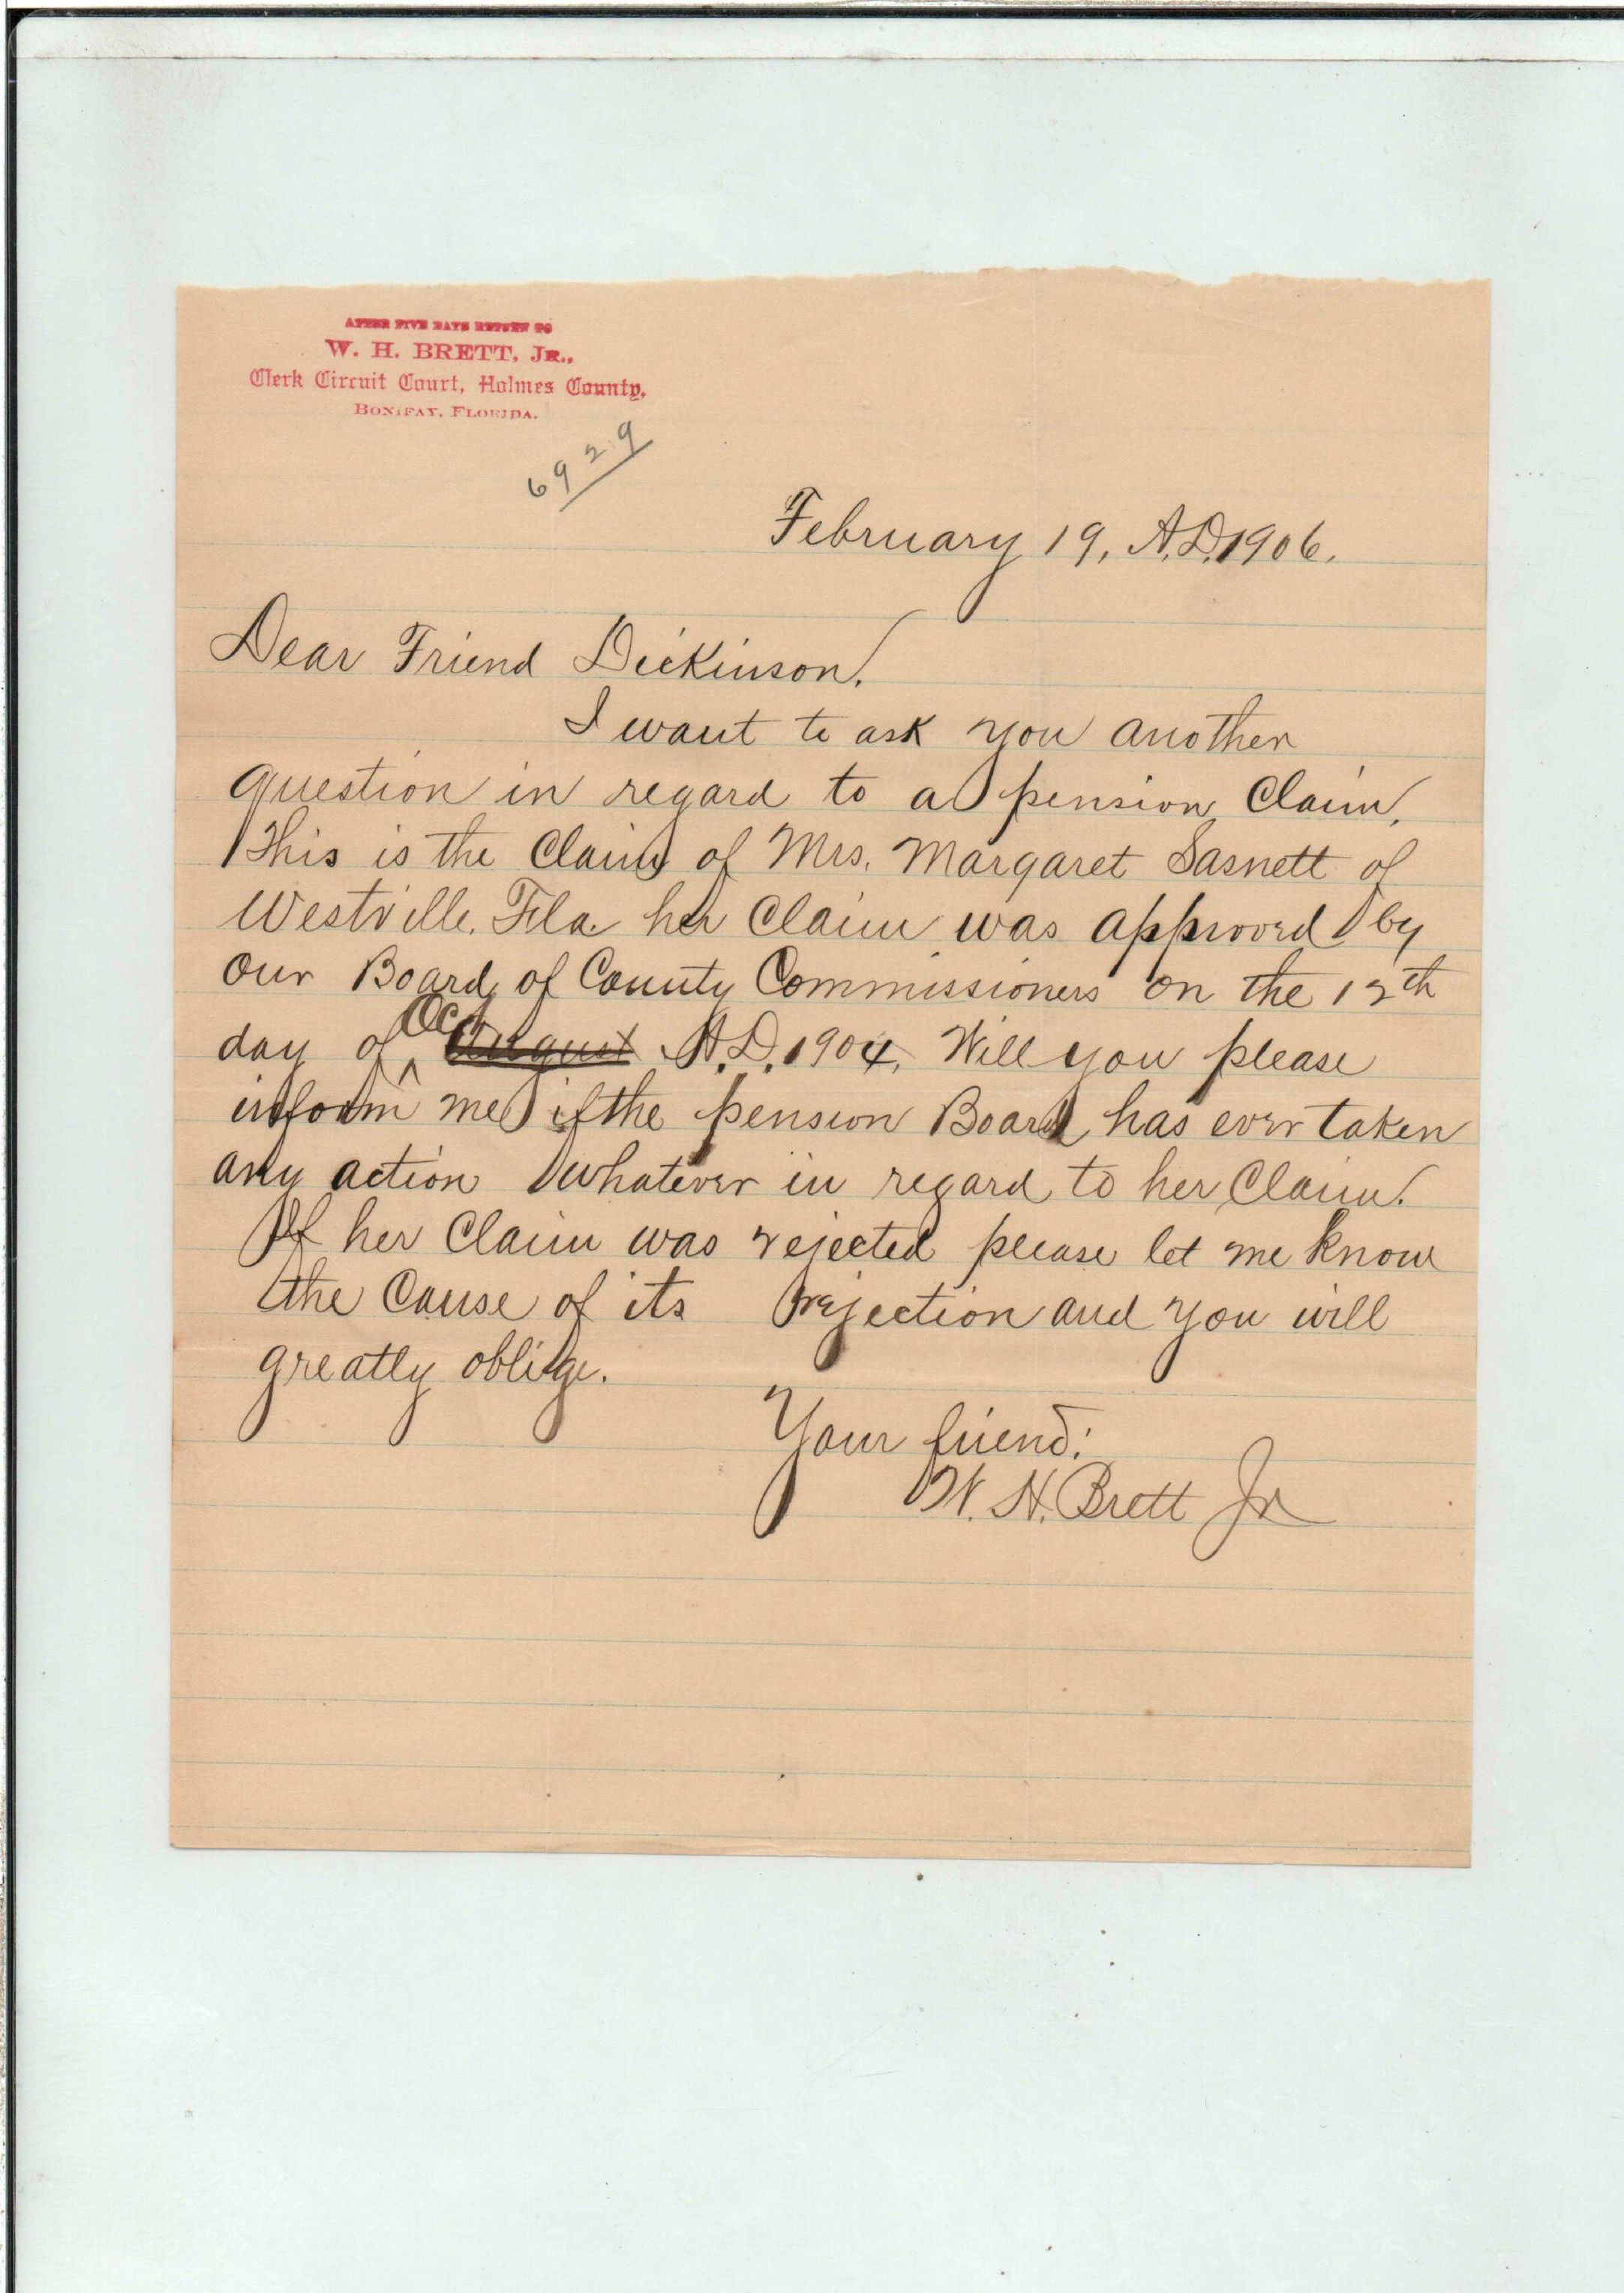 AFTER FIVE DAYS RETURN TO
W. H. BRETT, JR.,
Clerk Circuit Court, Holmes County,
BONIFAY, FLORIDA.
6929
February 19, A.D. 1906.
Dear Friend Dickinson,
I want to ask you another
question in regard to a pension Claim,
This is the Claim of Mrs. Margaret Sasnett of
Westville, Fla. her Claim was approved by
Our Board of County Commissioners on the 12th
day of Oct August A.D. 1904, Will you please
inform me if the pension Board has ever taken
any action whatever in regard to her Claim.
If her Claim was rejected please let me know
the Cause of its rejection and you will
greatly oblige.
Your friend:
W. H. Brett Jr